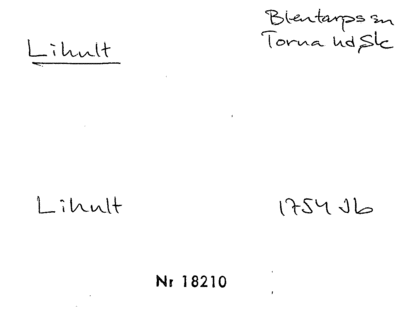 Lihult
Blentarps sn
Torna hd, Sk
Lihult
1754 Jb
Nr 18210